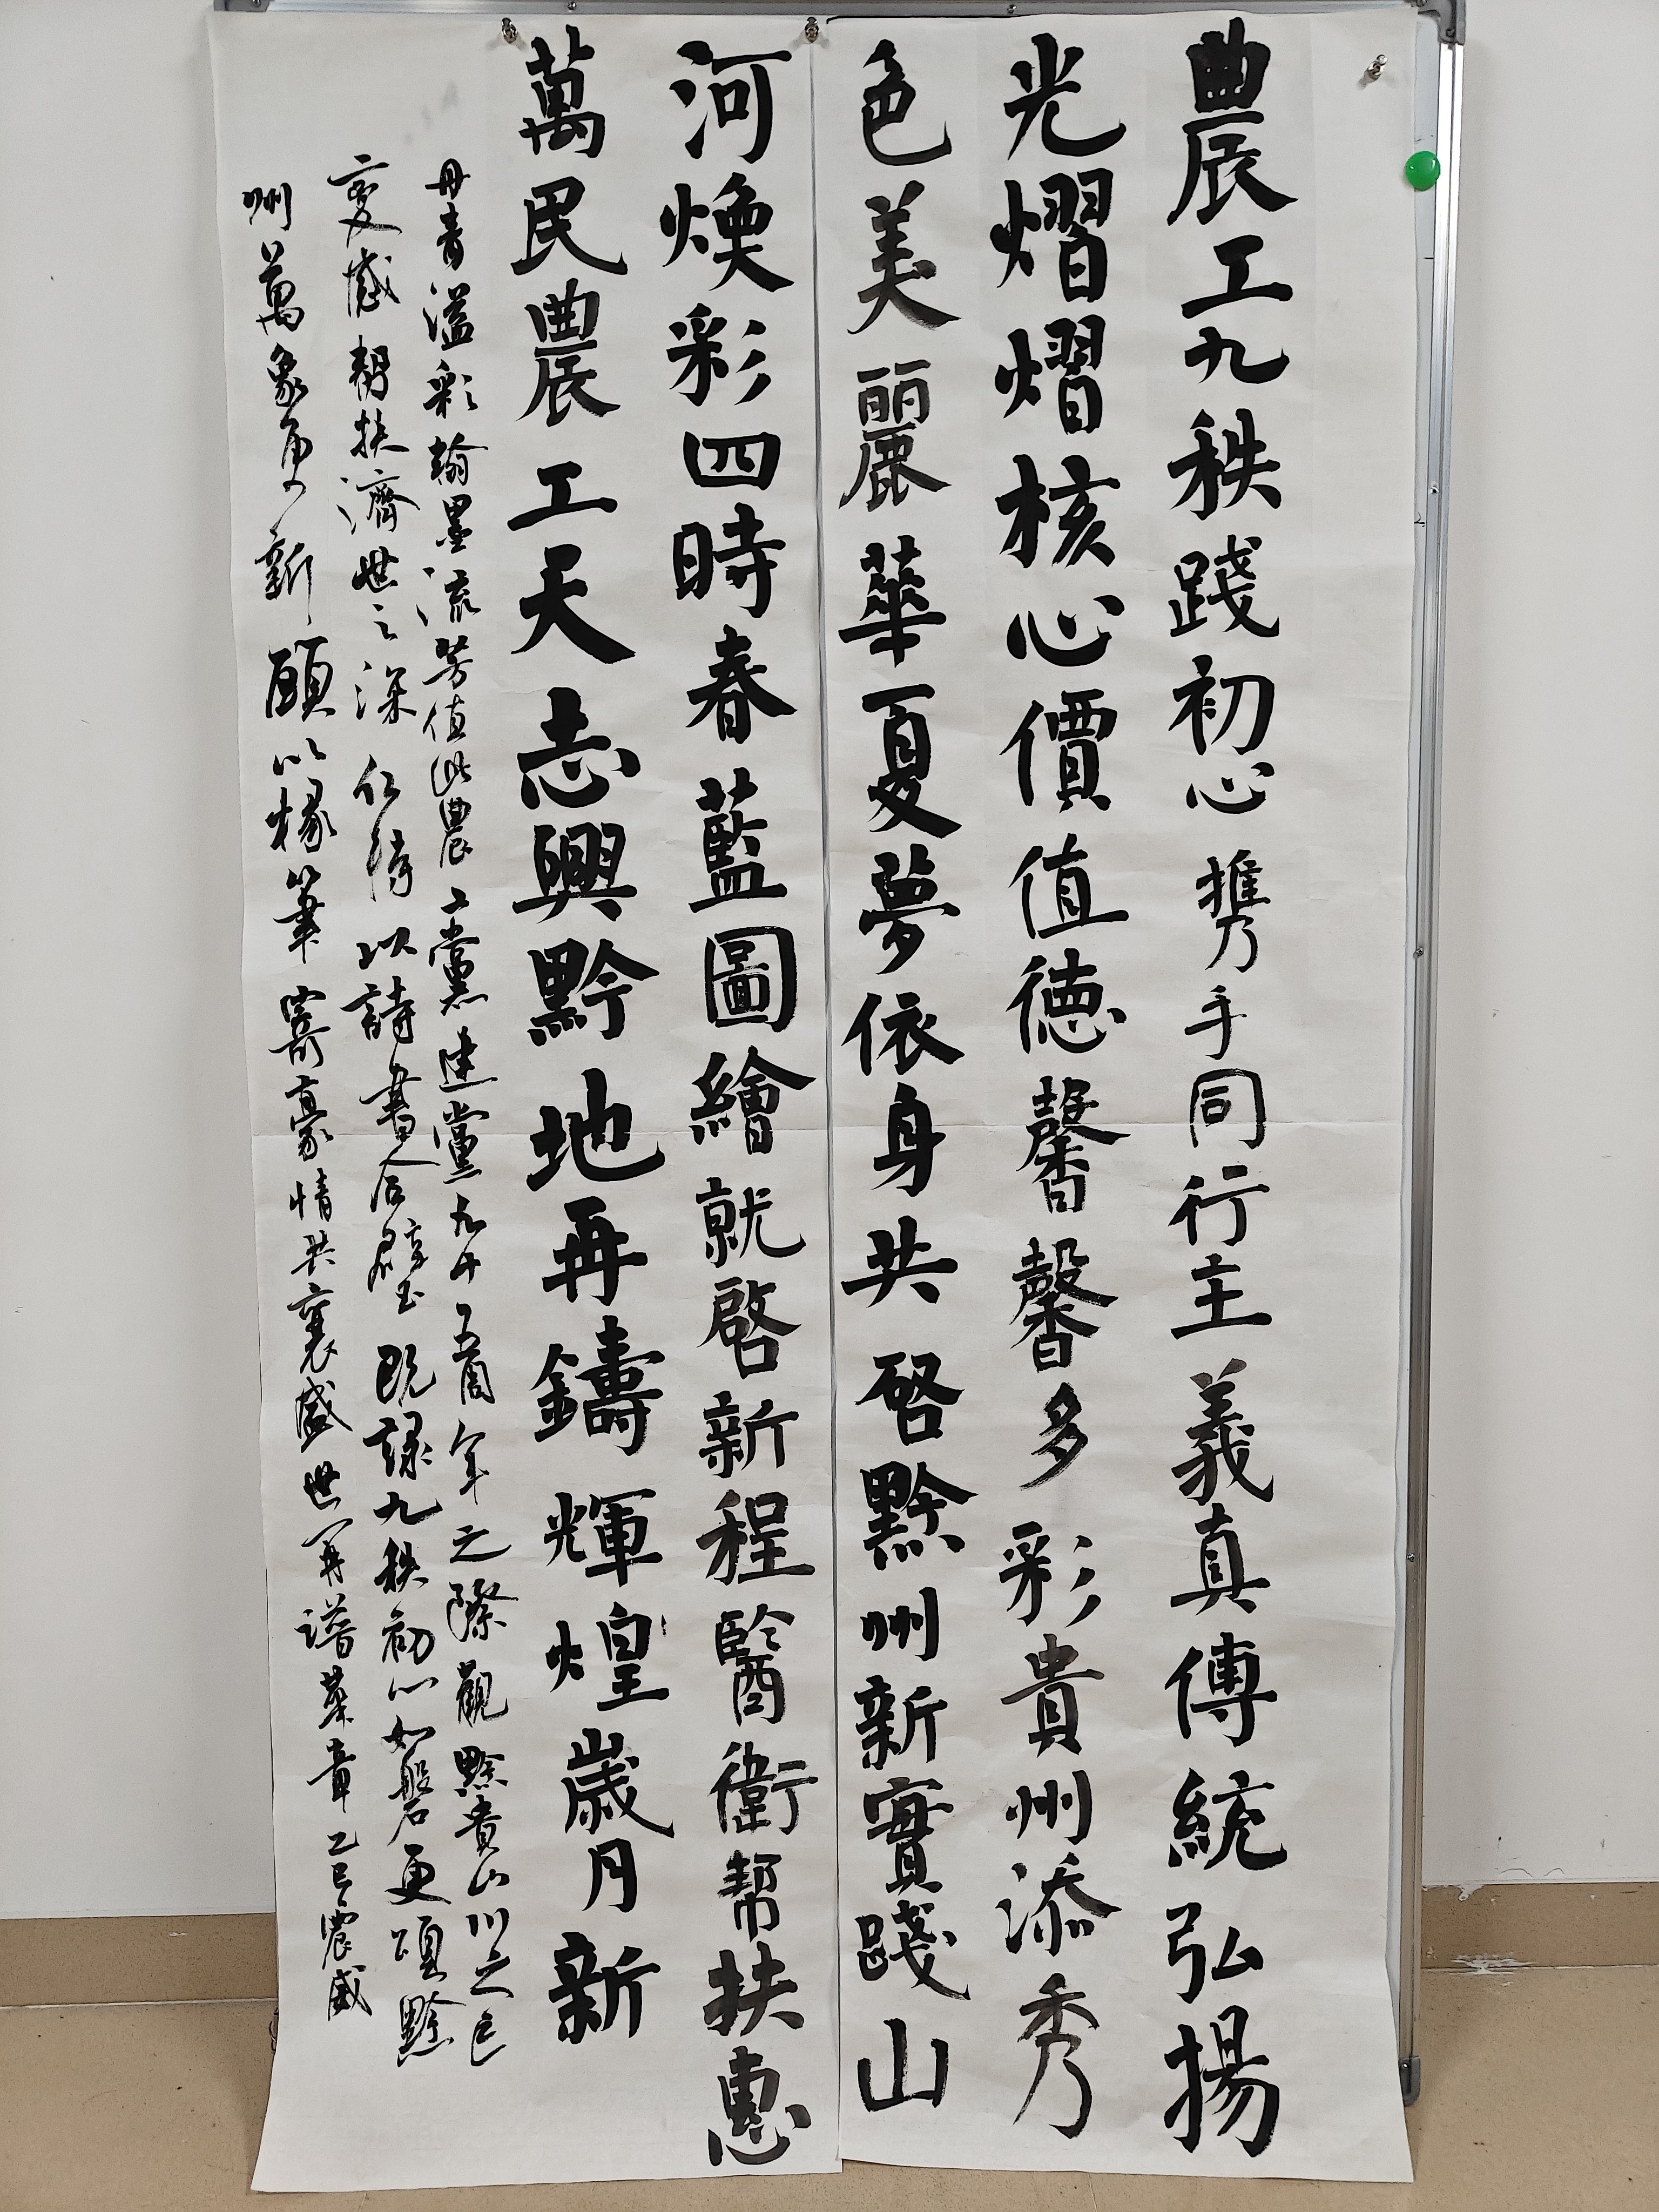 農工九秩踐初心攜手同行主義真傳統弘揚
光熠熠核心價值德馨馨多彩貴州添秀
色美麗華夏夢依身共啓黔州新實踐山
河煥彩四時春藍圖繪就啓新程醫衛幫扶惠
萬民農工天志興黔地再鑄輝煌歲月新
丹青溢彩翰墨流芳值此農工黨建黨九十五周年之際觀黔貴山川之巨
變感幫扶濟世之深仁待以詩書合璧既錄九秩初心如磐更頌黔
州萬象更新願以椽筆寄豪情共襄盛世再譜華章乙巳震威